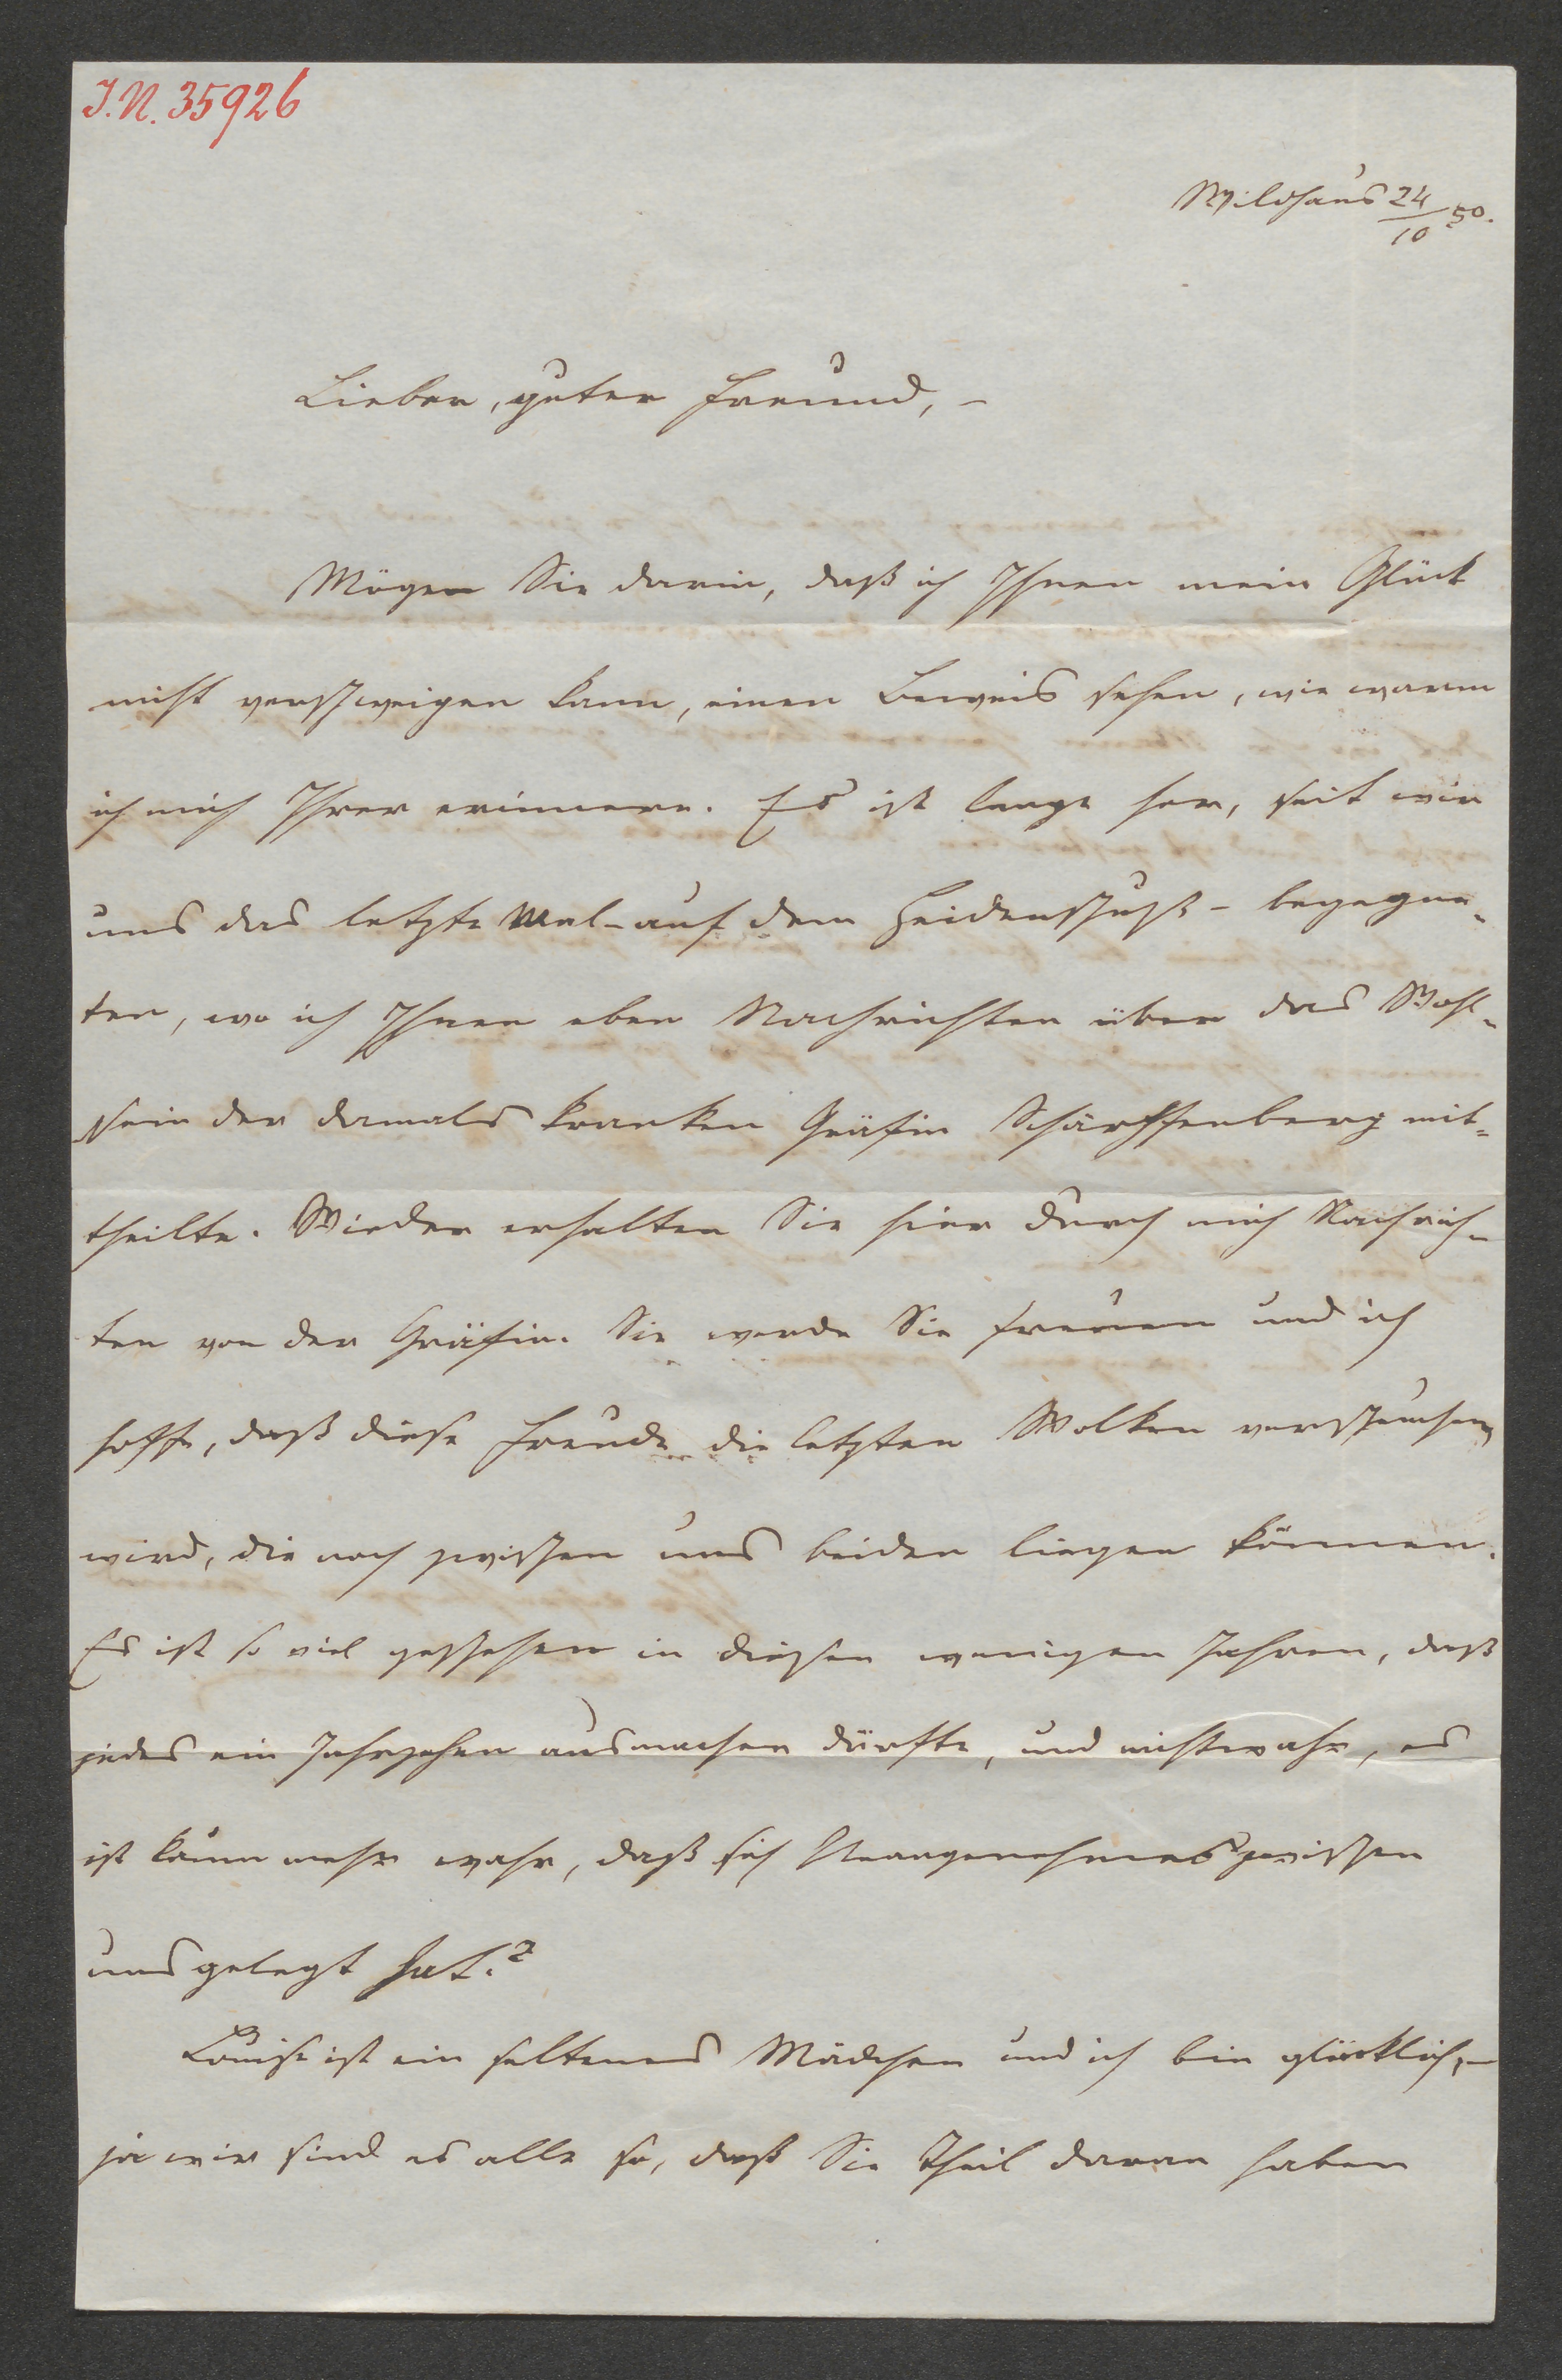 J.N. 35926
Wildhaus 24/10 50.
Lieber, guter Freund, –
Mögen Sie darin, daß ich Ihnen mein Glück
nicht verschweigen kann, einen Beweis sehen, wie warm
ich mich Ihrer erinnere. Es ist lange her, seit wir
uns das letzte Mal – auf dem Heidenschuß – begegne-
ten, wo ich Ihnen eben Nachrichten über das Wohl-
sein der damals kranken Gräfin Schärffenberg mit-
theilte. Wieder erhalten Sie hier durch mich Nachrich-
ten von der Gräfin. Sie werde Sie freuen und ich
hoffe, daß diese Freude die letzten Wolken verscheuchen
wird, die noch zwischen uns beiden liegen können.
Es ist so viel geschehen in diesen wenigen Jahren, daß
jedes ein Jahrzehen ausmachen dürfte, und nichtwahr, es
ist kaum mehr wahr, daß sich Unangenehmes zwischen
uns gelegt hat.?
Louise ist ein seltenes Mädchen und ich bin glücklich, –
ja wir sind es alle so, daß Sie Theil daran haben